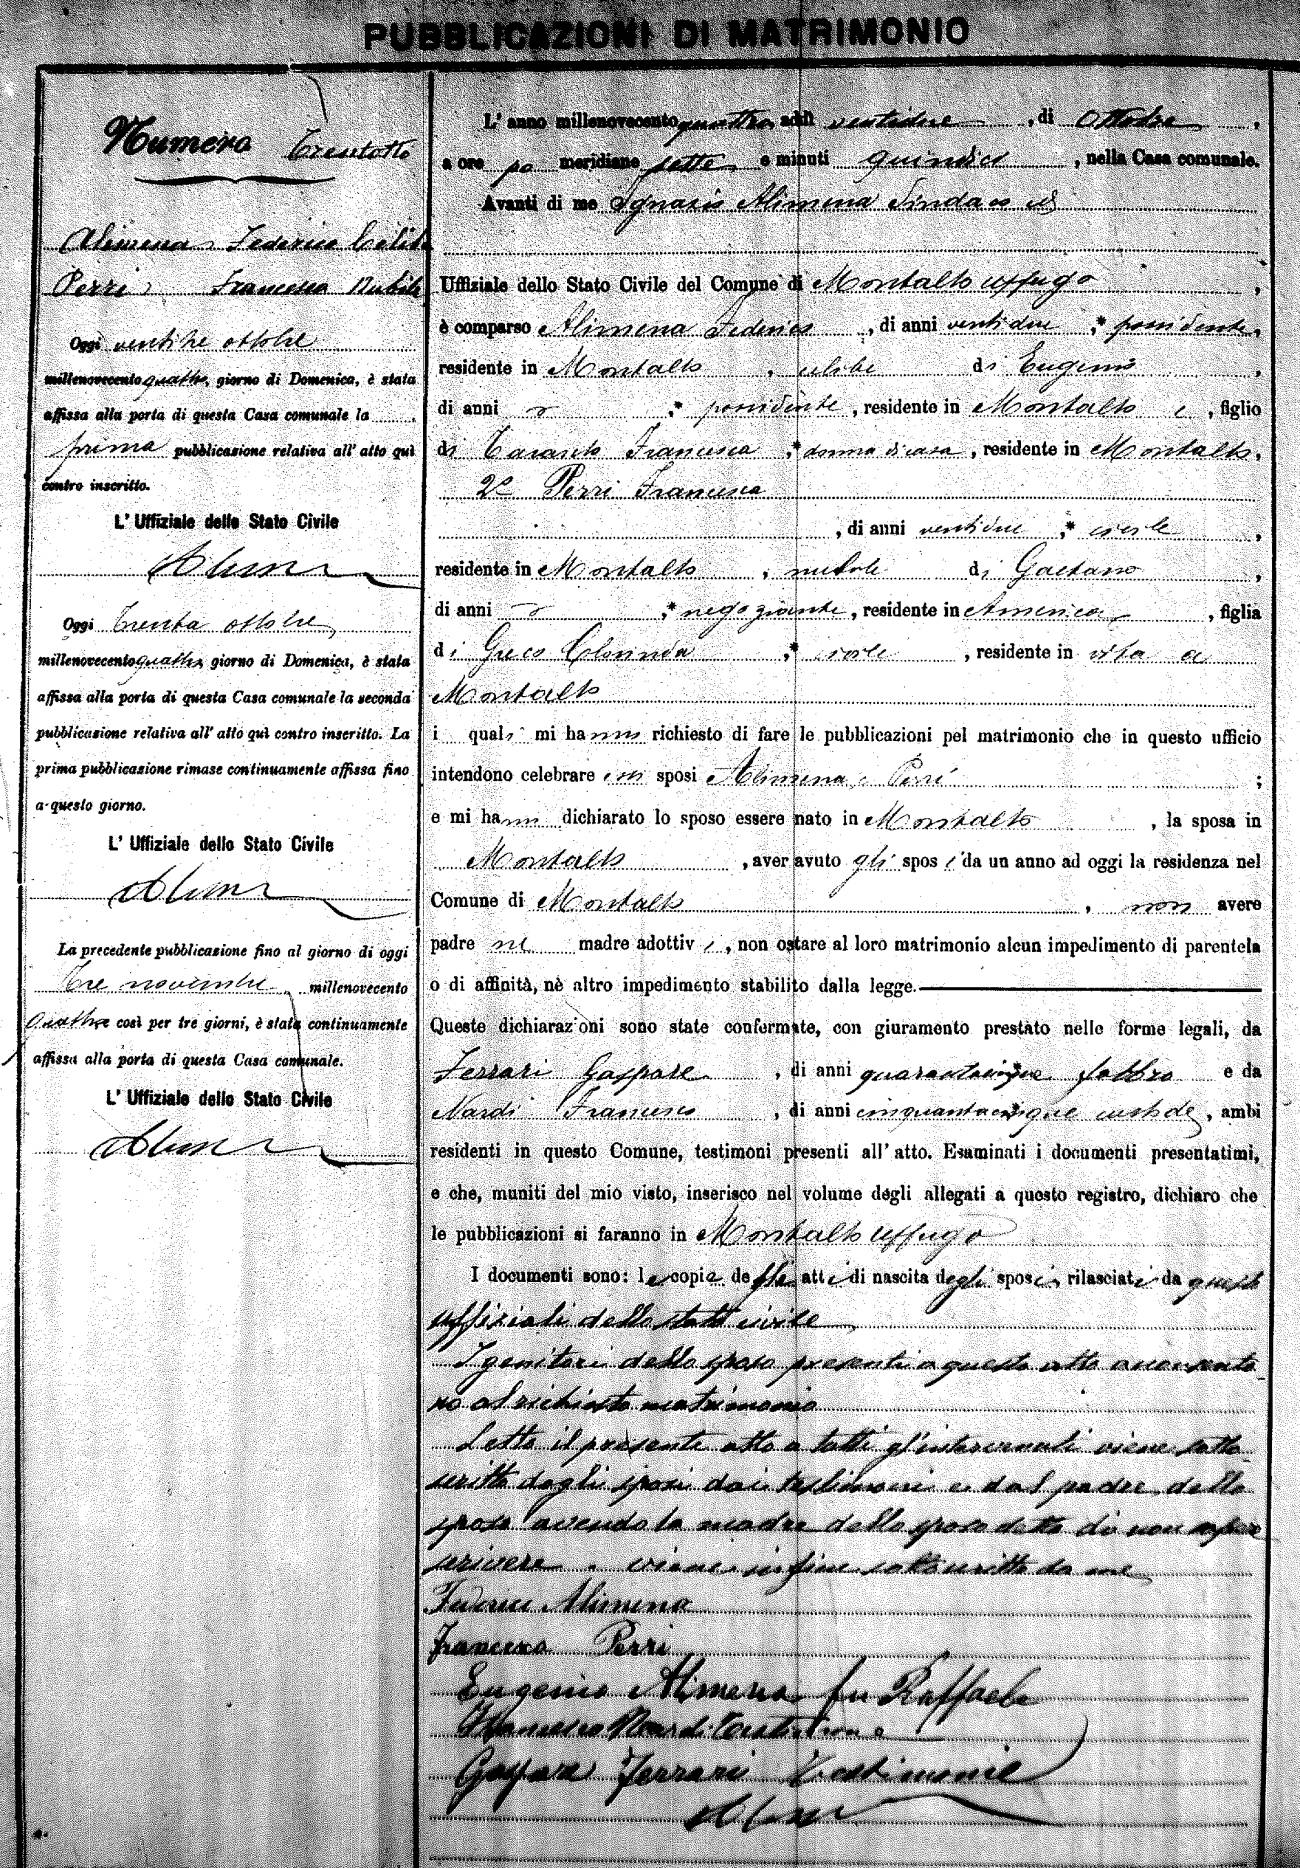 PUBBLICAZIONI DI MATRIMONIO
Numero Trentotto
Alimena Federico Celibe
Perri Francesca Nubile
Oggi ventitre ottobre
millenovecento quattro, giorno di Domenica, è stata
affissa alla porta di questa Casa comunale la
prima pubblicazione relativa all' atto quì
contro inscritto.
L' Uffiziale dello Stato Civile
Alimena
Oggi Trenta ottobre
millenovecento quattro giorno di Domenica, è stata
affissa alla porta di questa Casa comunale la seconda
pubblicazione relativa all' atto quì contro inscritto. La
prima pubblicazione rimase continuamente affissa fino
a questo giorno.
L' Uffiziale dello Stato Civile
Alimena
La precedente pubblicazione fino al giorno di oggi
Tre novembre millenovecento
quattro così per tre giorni, è stata continuamente
affissa alla porta di questa Casa comunale.
L' Uffiziale dello Stato Civile
Alimena
L' anno millenovecento quattro addì ventidue, di Ottobre,
a ore po meridiane sette e minuti quindici, nella Casa comunale.
Avanti di me Ignazio Alimena Sindaco ed
Uffiziale dello Stato Civile del Comune di Montalto Uffugo,
è comparso Alimena Federico, di anni ventidue,* possidente,
residente in Montalto, celibe di Eugenio,
di anni ,* possidente, residente in Montalto e, figlio
di Taranto Francesca,* donna di casa, residente in Montalto,
2º Perri Francesca
, di anni ventidue,* civile,
residente in Montalto, nubile di Gaetano,
di anni ,* negoziante, residente in America, figlia
di Greco Clorinda,* civile, residente in vita a
Montalto
i quali mi hanno richiesto di fare le pubblicazioni pel matrimonio che in questo ufficio
intendono celebrare essi sposi Alimena e Perri;
e mi hanno dichiarato lo sposo essere nato in Montalto, la sposa in
Montalto, aver avuto gli sposi da un anno ad oggi la residenza nel
Comune di Montalto, non avere
padre ne madre adottivi, non ostare al loro matrimonio alcun impedimento di parentela
o di affinità, nè altro impedimento stabilito dalla legge.
Queste dichiarazioni sono state confermate, con giuramento prestato nelle forme legali, da
Ferrari Gaspare, di anni quarantacinque fabbro e da
Nardi Francesco, di anni cinquantacinque custode, ambi
residenti in questo Comune, testimoni presenti all' atto. Esaminati i documenti presentatimi,
e che, muniti del mio visto, inserisco nel volume degli allegati a questo registro, dichiaro che
le pubblicazioni si faranno in Montalto Uffugo
I documenti sono: le copie degli atti di nascita degli sposi, rilasciati da questo
uffiziali dello stato civile
I genitori dello sposo presenti a questo atto acconsento
no al richiesto matrimonio
Letto il presente atto a tutti gl'intervenuti viene sotto
scritto dagli sposi dai testimoni e dal padre dello
sposo avendo la madre dello sposo detto di non sapere
scrivere. viene infine sottoscritto da me
Federico Alimena
Francesca Perri
Eugenio Alimena fu Raffaele
Francesco Nardi testimone
Gaspare Ferrari Testimonie
Alimena